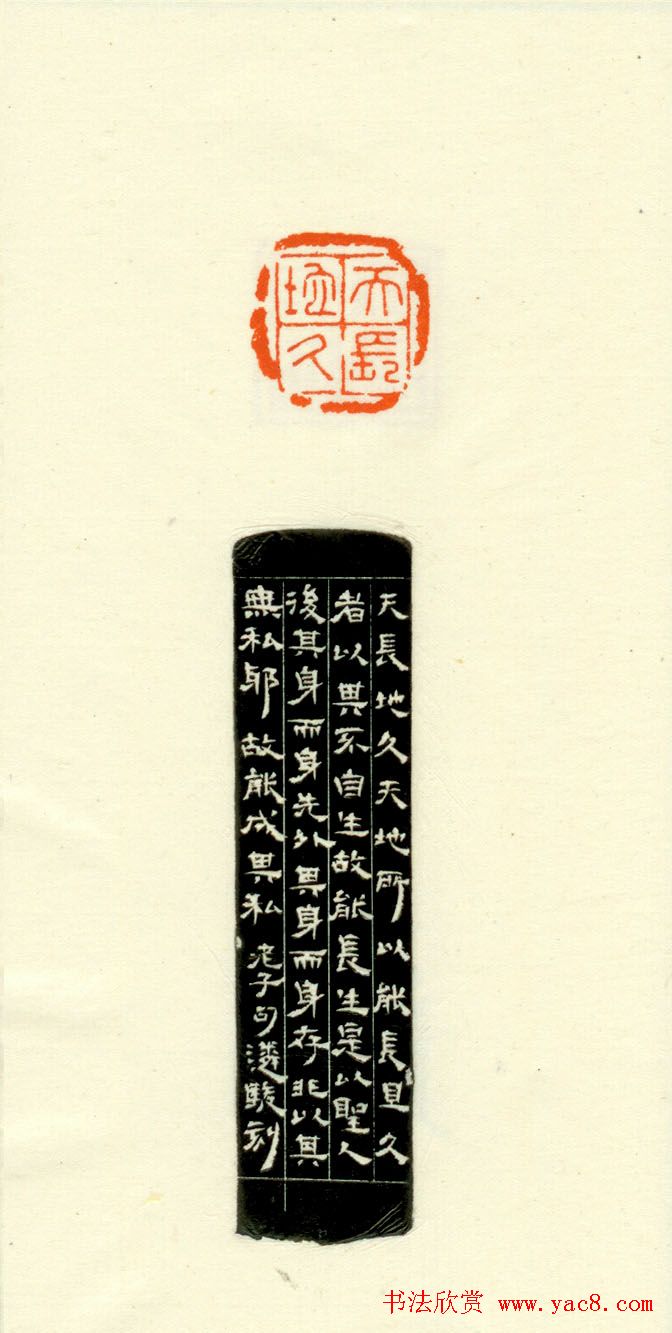 天長
地久
天長地久天地所以能長且久
者以其不自生故能長生是以聖人
後其身而身先外其身而身存非以其
無私邪故能成其私 老子句 駿刻
书法欣赏 www.yac8.com